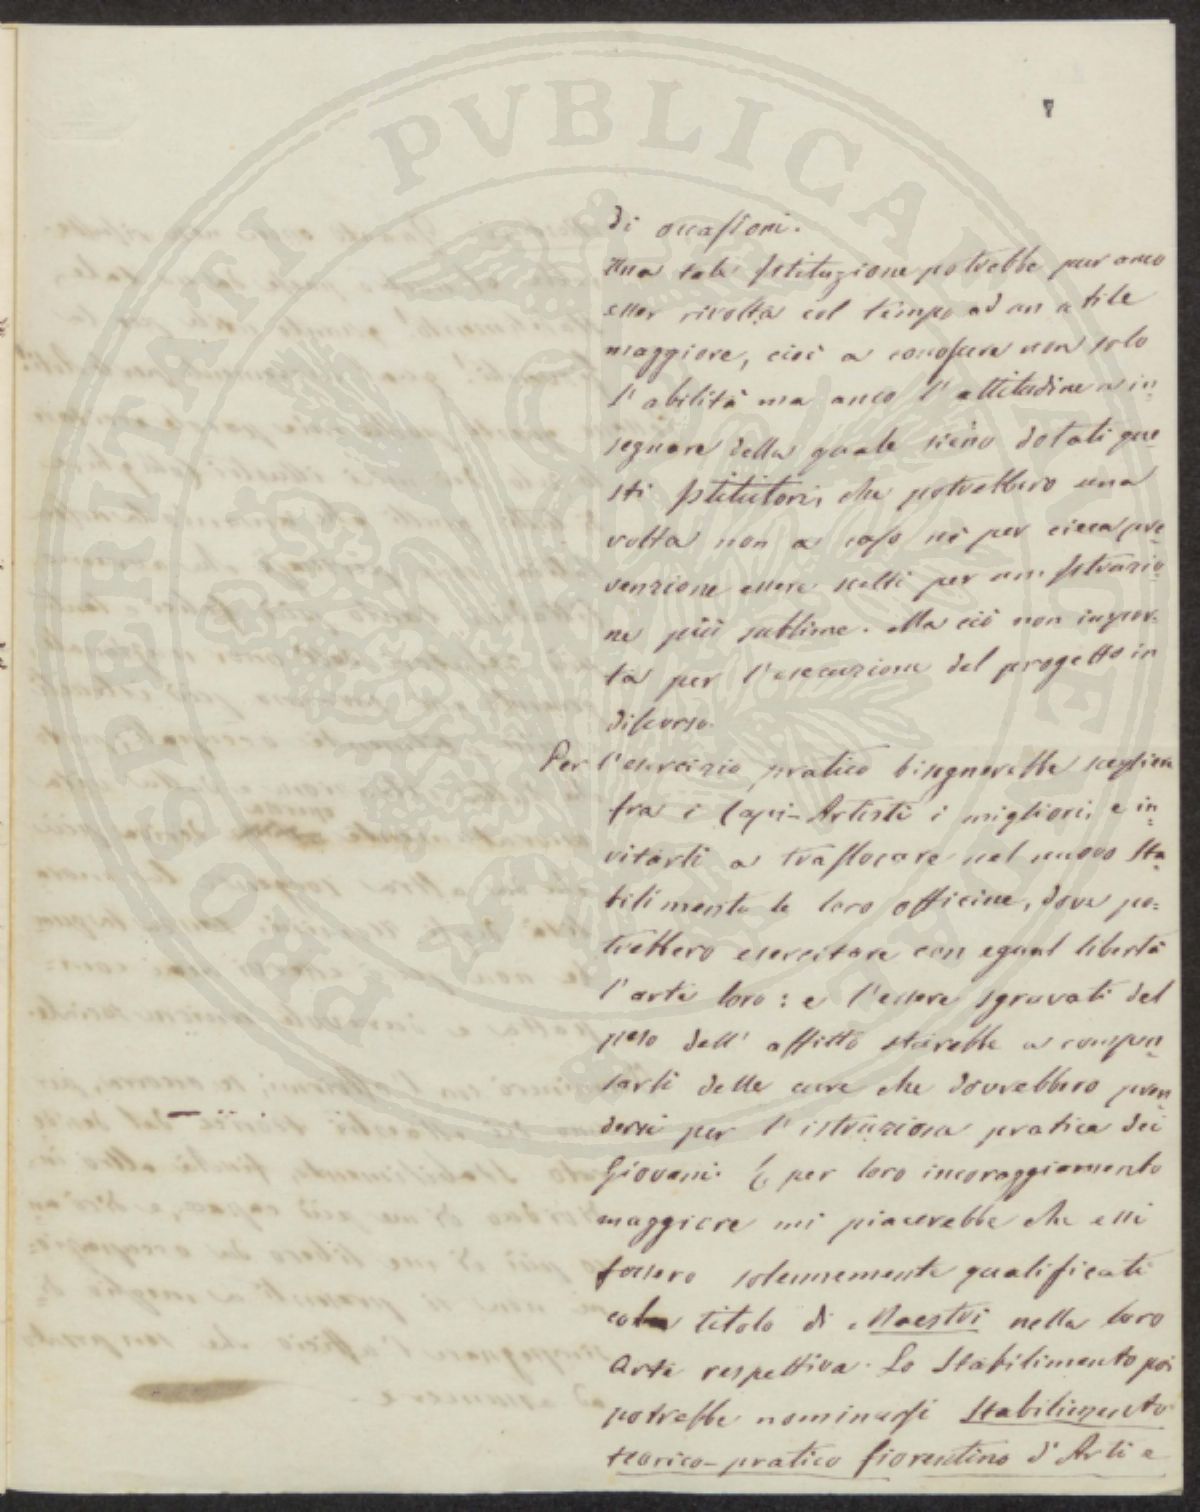 7
di occasioni.
Una tale Istituzione potrebbe pur anco
esser rivolta col tempo ad un utile
maggiore, cioè a conoscere non solo
l'abilità ma anco l'attitudine a in=
segnare della quale sieno dotati que=
sti Istitutori, che potrebbero una
volta non a caso nè per cieca pre=
venzione essere scelti per un'Istruzio=
ne più sublime. Ma ciò non impor=
ta per l'esecuzione del progetto in
discorso.
Per l'esercizio pratico bisognerebbe scegliere
fra i Capi-Artisti i migliori, e in=
vitarli a traslocare nel nuovo Sta=
bilimento le loro officine, dove po=
trebbero esercitare con egual libertà
l'arte loro: e l'essere sgravati del
peso dell'affitto starebbe a compen=
sarli delle cure che dovrebbero pren=
dersi per l'istruzione pratica dei
Giovani. E per loro incoraggiamento
maggiore mi piacerebbe che essi
fossero solennemente qualificati
col titolo di Maestri nella loro
Arte respettiva. Lo Stabilimento poi
potrebbe nominarsi Stabilimento
teorico-pratico fiorentino d'Arti e
PROSPERITATI PVBLICAE